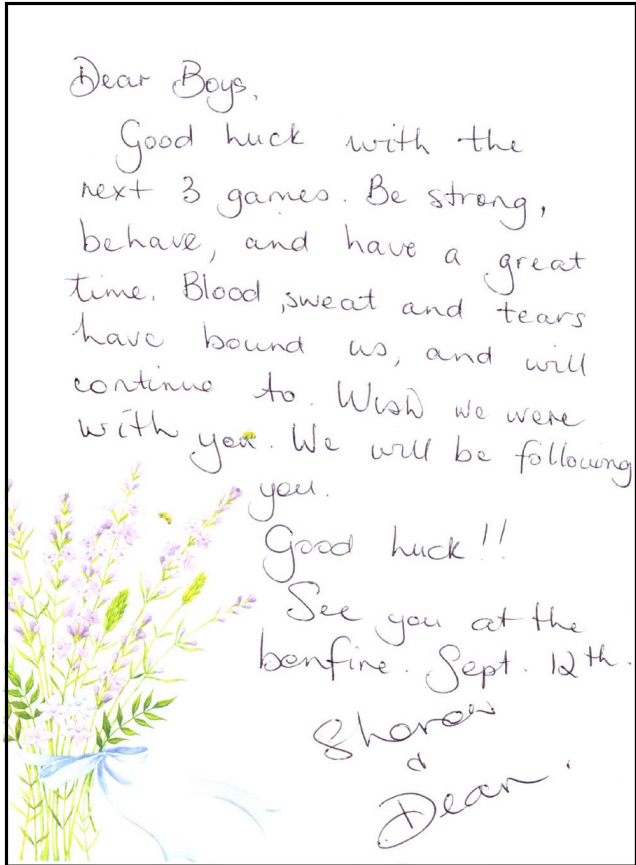 Dear Boys,
Good Luck with the
next 3 games. Be strong,
behave, and have a great
time. Blood, sweat and tears
have bound us, and will
continue to. Wish we were
with you. We will be following
you.
Good Luck!!
See you at the
bonfire. Sept. 12th.
Sharon
&
Dean.